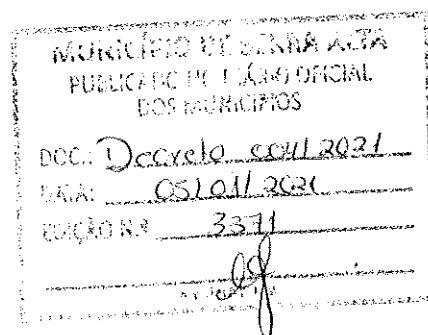 MUNICÍPIO DE SERRA ALTA
PUBLICADO DIÁRIO OFICIAL
DOS MUNICÍPIOS
DOC.: Decreto 004/2021
DATA: 05/01/2021
EDIÇÃO N.º 3371